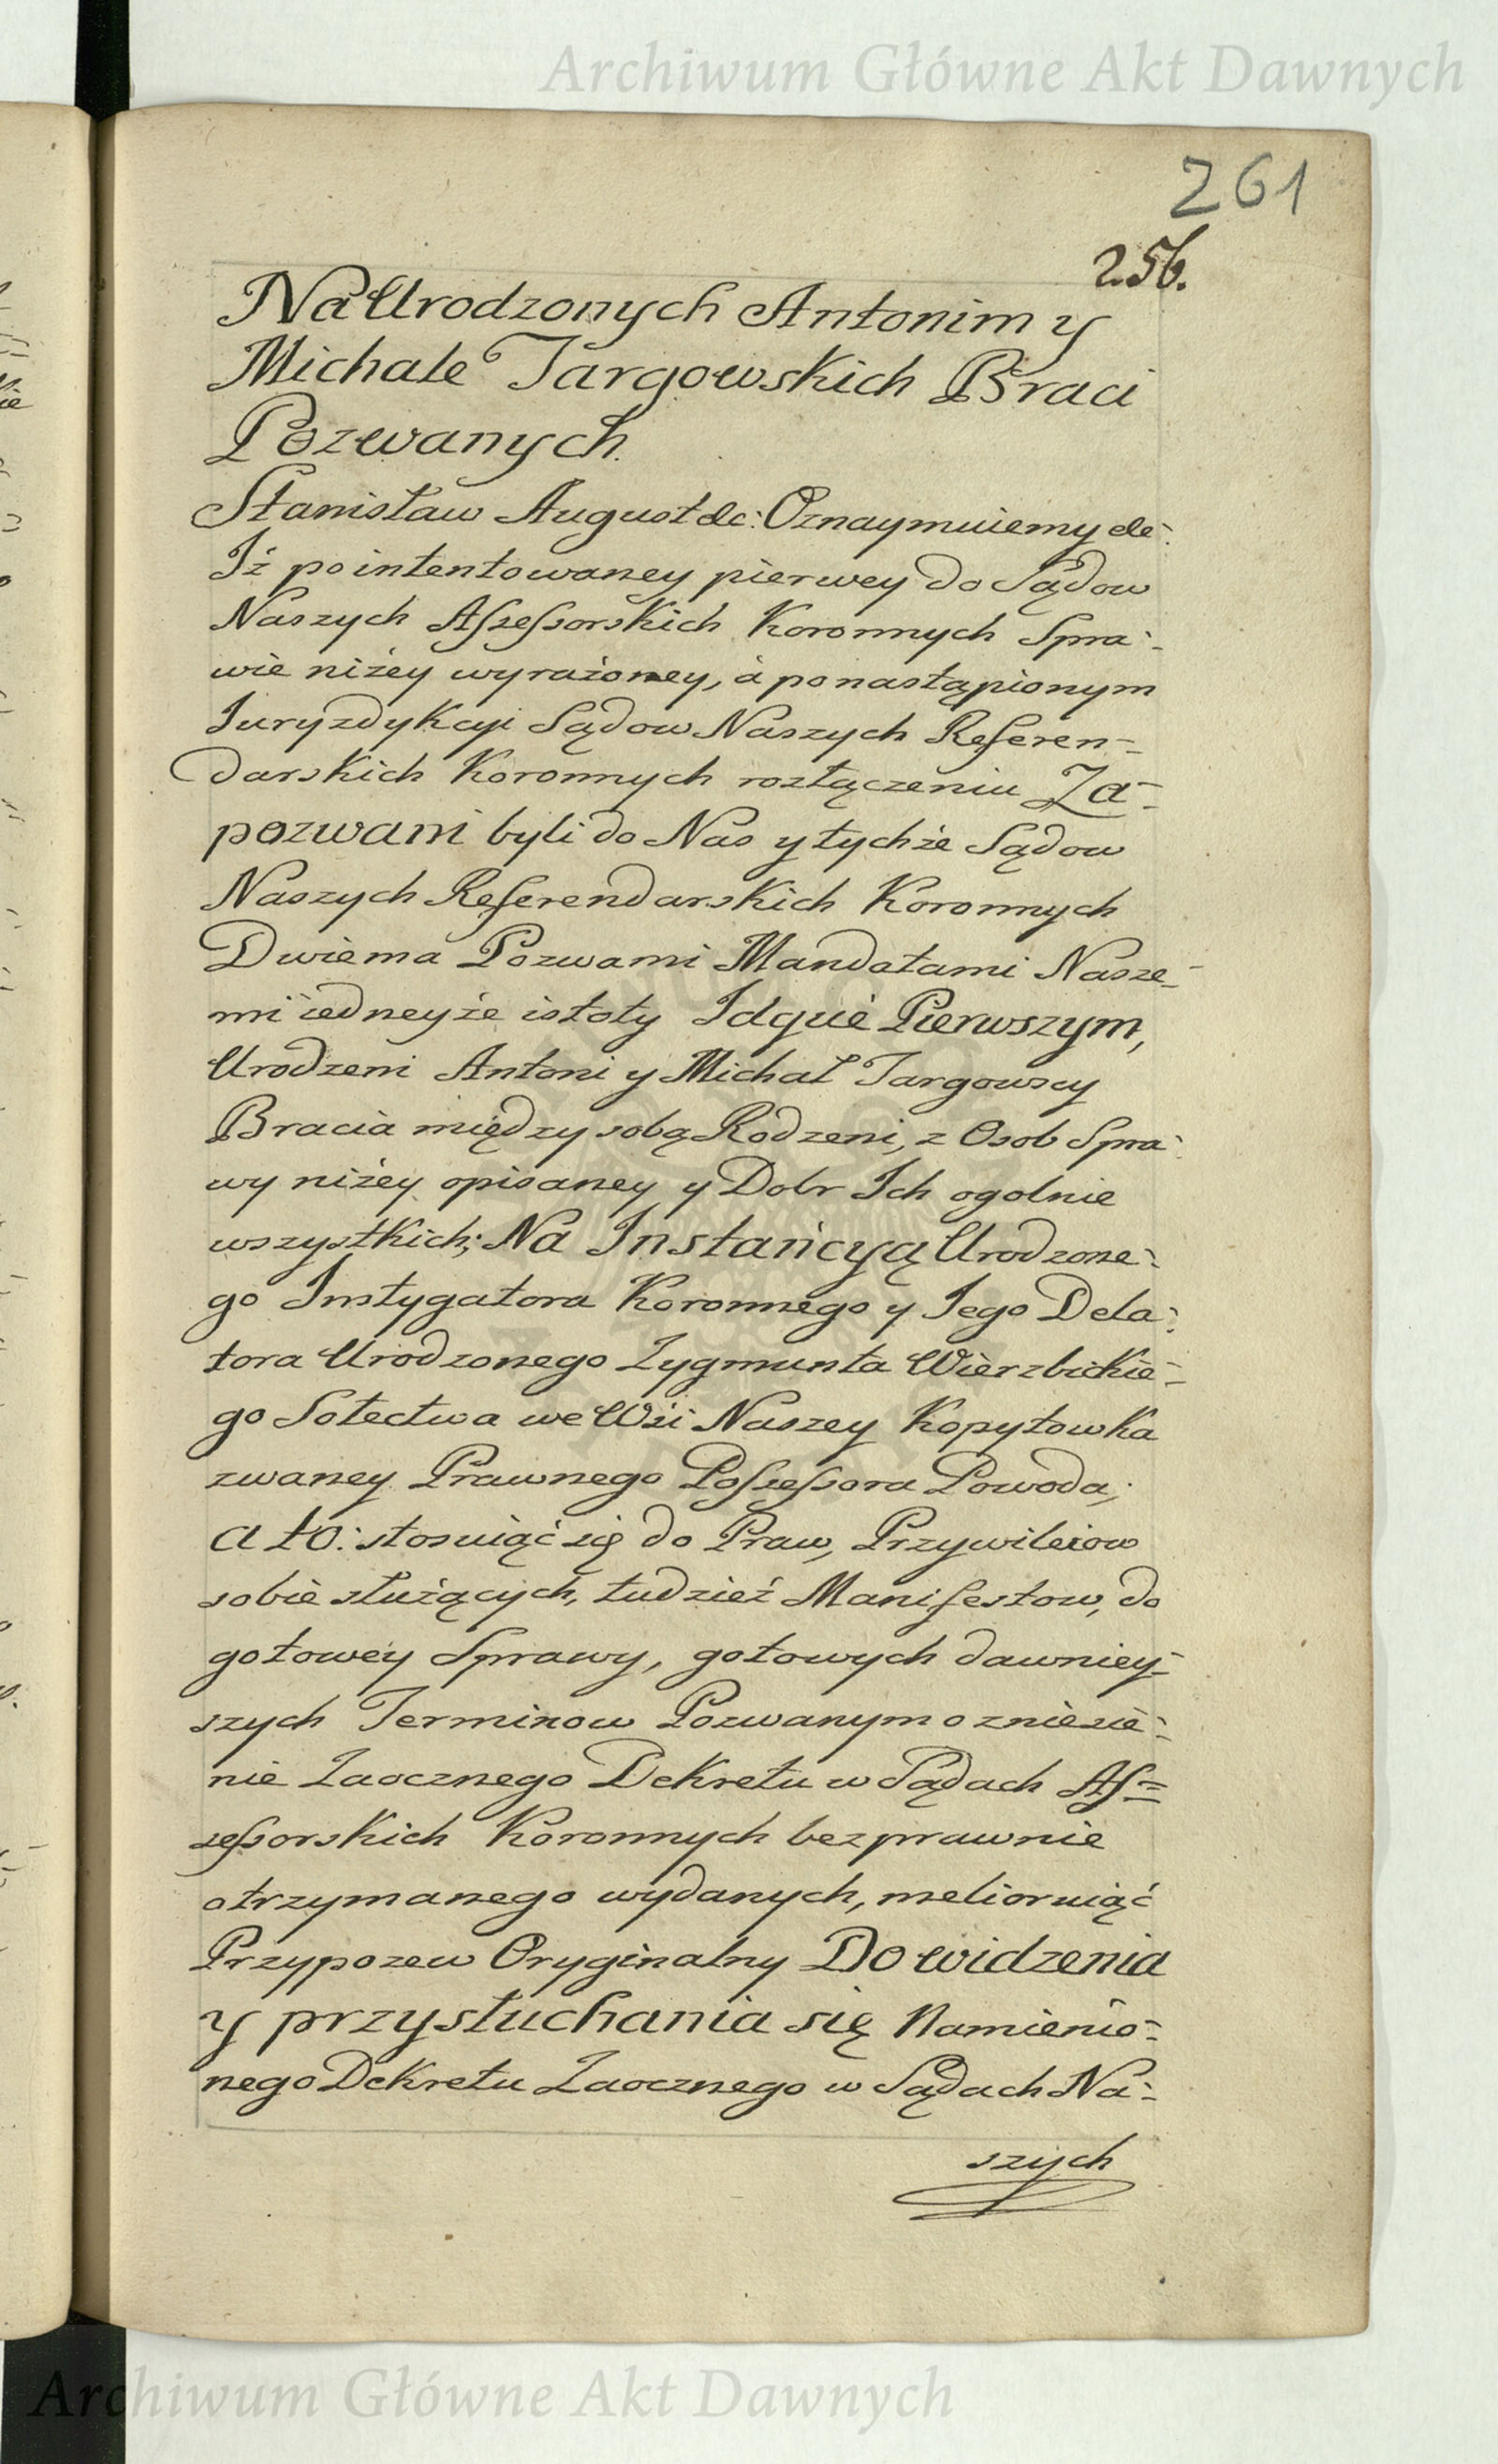 Archiwum Główne Akt Dawnych
261
256.
Na Urodzonych Antonim y
Michale Targowskich Braci
Pozwanych.
Stanisław August &c: Oznaymuiemy &c:
Iż po intentowaney pierwey do Sądow
Naszych Assessorskich Koronnych Spra-
wie niżey wyrażoney, á po nastąpionym
Iuryzdykcyi Sądow Naszych Referen-
darskich Koronnych rozłączeniu Za-
pozwani byli do Nas y tychże Sądow
Naszych Referendarskich Koronnych
Dwiema Pozwami Mandatami Nasze-
mi iedneyże istoty Idque Pierwszym,
Urodzeni Antoni y Michał Targowscy
Bracia między sobą Rodzeni, z Osob Spra-
wy niżey opisaney y Dobr Ich ogolnie
wszystkich; Na Instancyą Urodzone-
go Instygatora Koronnego y Iego Dela-
tora Urodzonego Zygmunta Wierzbickie-
go Sołectwa we Wsi Naszey Kopytowka
zwaney Prawnego Possessora Powoda;
a to: stosuiąc się do Praw, Przywileiow
sobie służących, tudzież Manifestow, do
gotowey Sprawy, gotowych dawniey-
szych Terminow Pozwanym o zniesie-
nie Zaocznego Dekretu w Sądach As=
sessorskich Koronnych bezprawnie
otrzymanego wydanych, melioruiąc
Przypozew Oryginalny Do widzenia
y przysłuchania się Namienio-
nego Dekretu Zaocznego w Sądach Na-
szych
Archiwum Główne Akt Dawnych